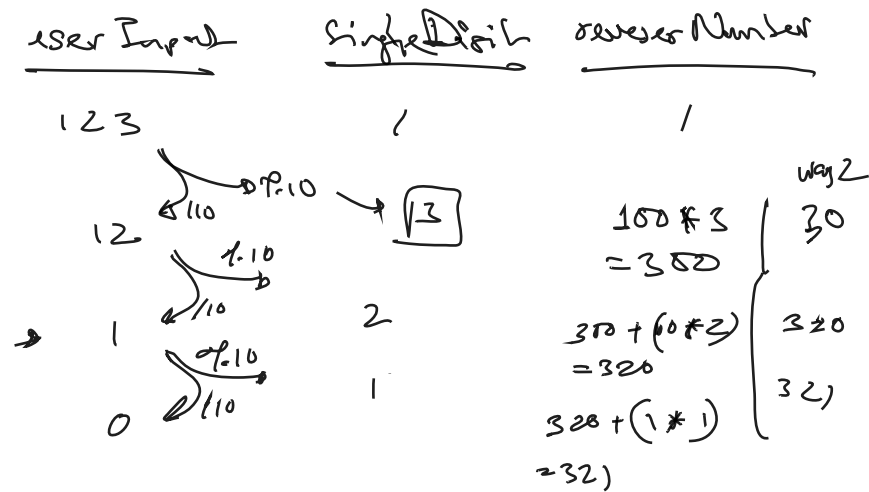 userInput singleDigit reveserNumber
123 / /
%10 3
/10
way2
12 100 * 3 30
= 300
%10
/10
1 2 300 + (10 * 2) 320
= 320
%10
/10
1 321
0 320 + (1 * 1)
= 321